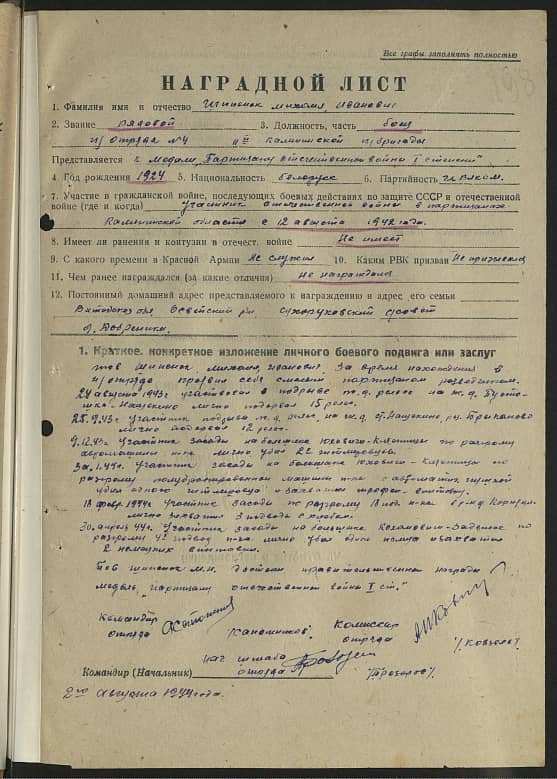 Все графы заполнять полностью
198
НАГРАДНОЙ ЛИСТ
1. Фамилия имя и отчество Шпинок Михаил Иванович
2. Звание рядовой 3. Должность, часть боец
п/отряда №4 Калининской п/бригады
Представляется к медали "Партизану отечественной войны I степени"
4. Год рождения 1924 5. Национальность белорус 6. Партийность чл. ВЛКСМ.
7. Участие в гражданской войне, последующих боевых действиях по защите СССР и отечественной
войне (где и когда) участник отечественной войны в партизанах
Калининской области с 12 августа 1942 года.
8. Имеет ли ранения и контузии в отечест. войне Не имеет
9. С какого времени в Красной Армии Не служил 10. Каким РВК призван Не призывался
11. Чем ранее награждался (за какие отличия) Не награждался
12. Постоянный домашний адрес представляемого к награждению и адрес его семьи
Витебская обл. р-н. совет
д.
1. Краткое, конкретное изложение личного боевого подвига или заслуг
тов Шпинок, Михаил Иванович. За время нахождения в
п/отряде проявил себя смелым партизаном разведчиком.
24 августа 1943г участвовал в подрыве ж.д. рельс на ж.д.
Нащекино лично подорвал 15 рельс.
25.9.43г участник подрыва ж.д. рельс на ж.д. ст. Нащекино,
лично подорвал 12 рельс.
9.12.43г. Участник засады на большаке Юховичи-Клястицы по разгрому
автомашин пр-ка лично убил 2х гитлеровцев.
3а.1.44г. Участник засады на большаке Юховичи - Клястицы по
разгрому полубронированной машины пр-ка с автоматич. пушкой
убил одного гитлеровца и захватил трофей - винтовку.
18 февр. 1944г Участник засады по разгрому 18 под. пр-ка
лично захватил 2 подводы
30 апреля 44г. Участник засады на большаке Кохановичи-
разгрому подвод пр-ка. лично убил одного немца и захватил
2 немецких винтовки.
Тов Шпинок М.И. достоин правительственной награды
медаль "партизану отечественной войны I ст."
Командир
отряда
Комиссар
отряда
нач. штаба
отряда
Командир (Начальник)
2го августа 1944 года.